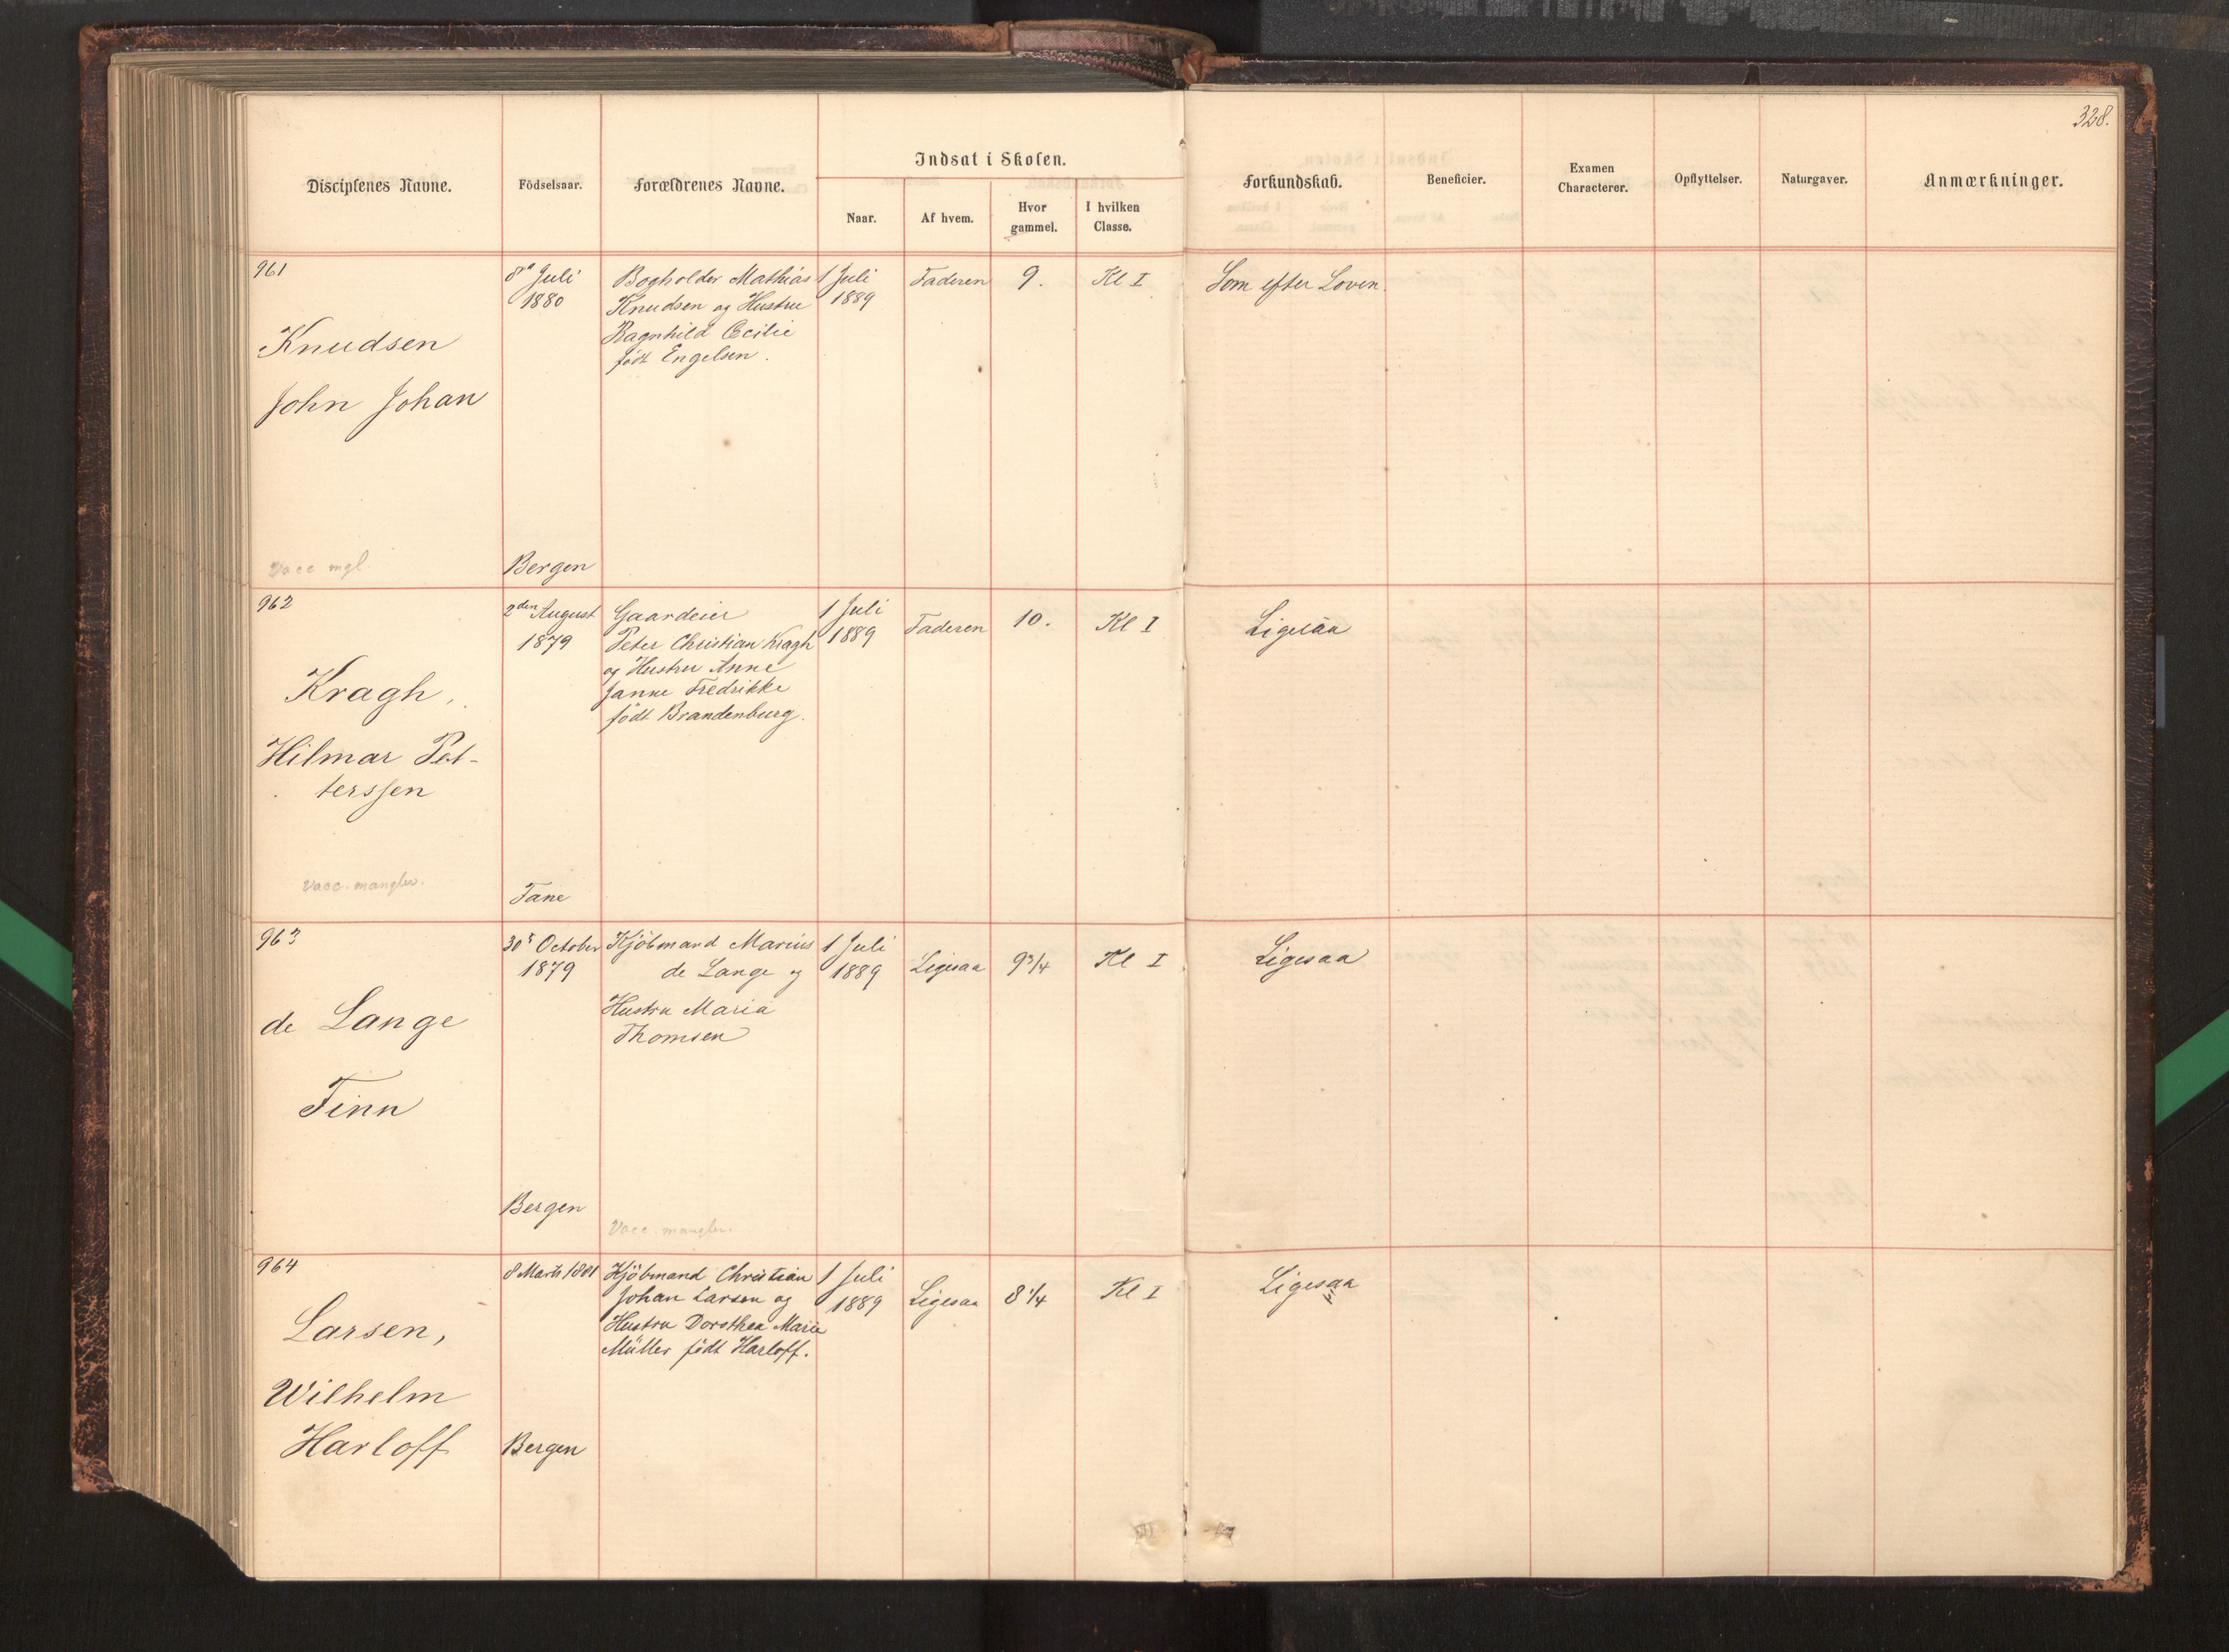 328.
Indsat i Skolen.
Disciplenes Navne.
Födselsaar.
Forældrenes Navne.
Naar.
Af hvem.
Hvor
gammel.
I hvilken
Classe.
Forkundskab.
Beneficier.
Examen
Characterer.
Opflyttelser.
Naturgaver.
Anmærkninger.
961
Knudsen
John Johan
Vacc mgl.
8de Juli
1880
Bergen
Bogholder Mathias
Knudsen og Hustru
Ragnhild Cecilie
födt Engelsen.
1 Juli
1889
Faderen
9.
Kl I
Som efter Loven.
962
Kragh,
Hilmar Pet-
terssen
Vacc. mangler.
2den August
1879
Fane
Gaardeier
Peter Christian Kragh
og Hustru Anne
Janne Fredrikke
födt Brandenburg.
1 Juli
1889
Faderen
10.
Kl I
Ligesaa
963
de Lange
Finn
30 October
1879
Bergen
Kjöbmand Marius
de Lange og
Hustru Maria
Thomsen
Vacc. mangler.
1 Juli
1889
Ligesaa
9 3/4
Kl I
Ligesaa
964
Larsen,
Wilhelm
Harloff
8 Marts 1881
Bergen
Kjöbmand Christian
Johan Larsen og
Hustru Dorothea Marie
Müller födt Harloff.
1 Juli
1889
Ligesaa
8 1/4
Kl I
Ligesaa